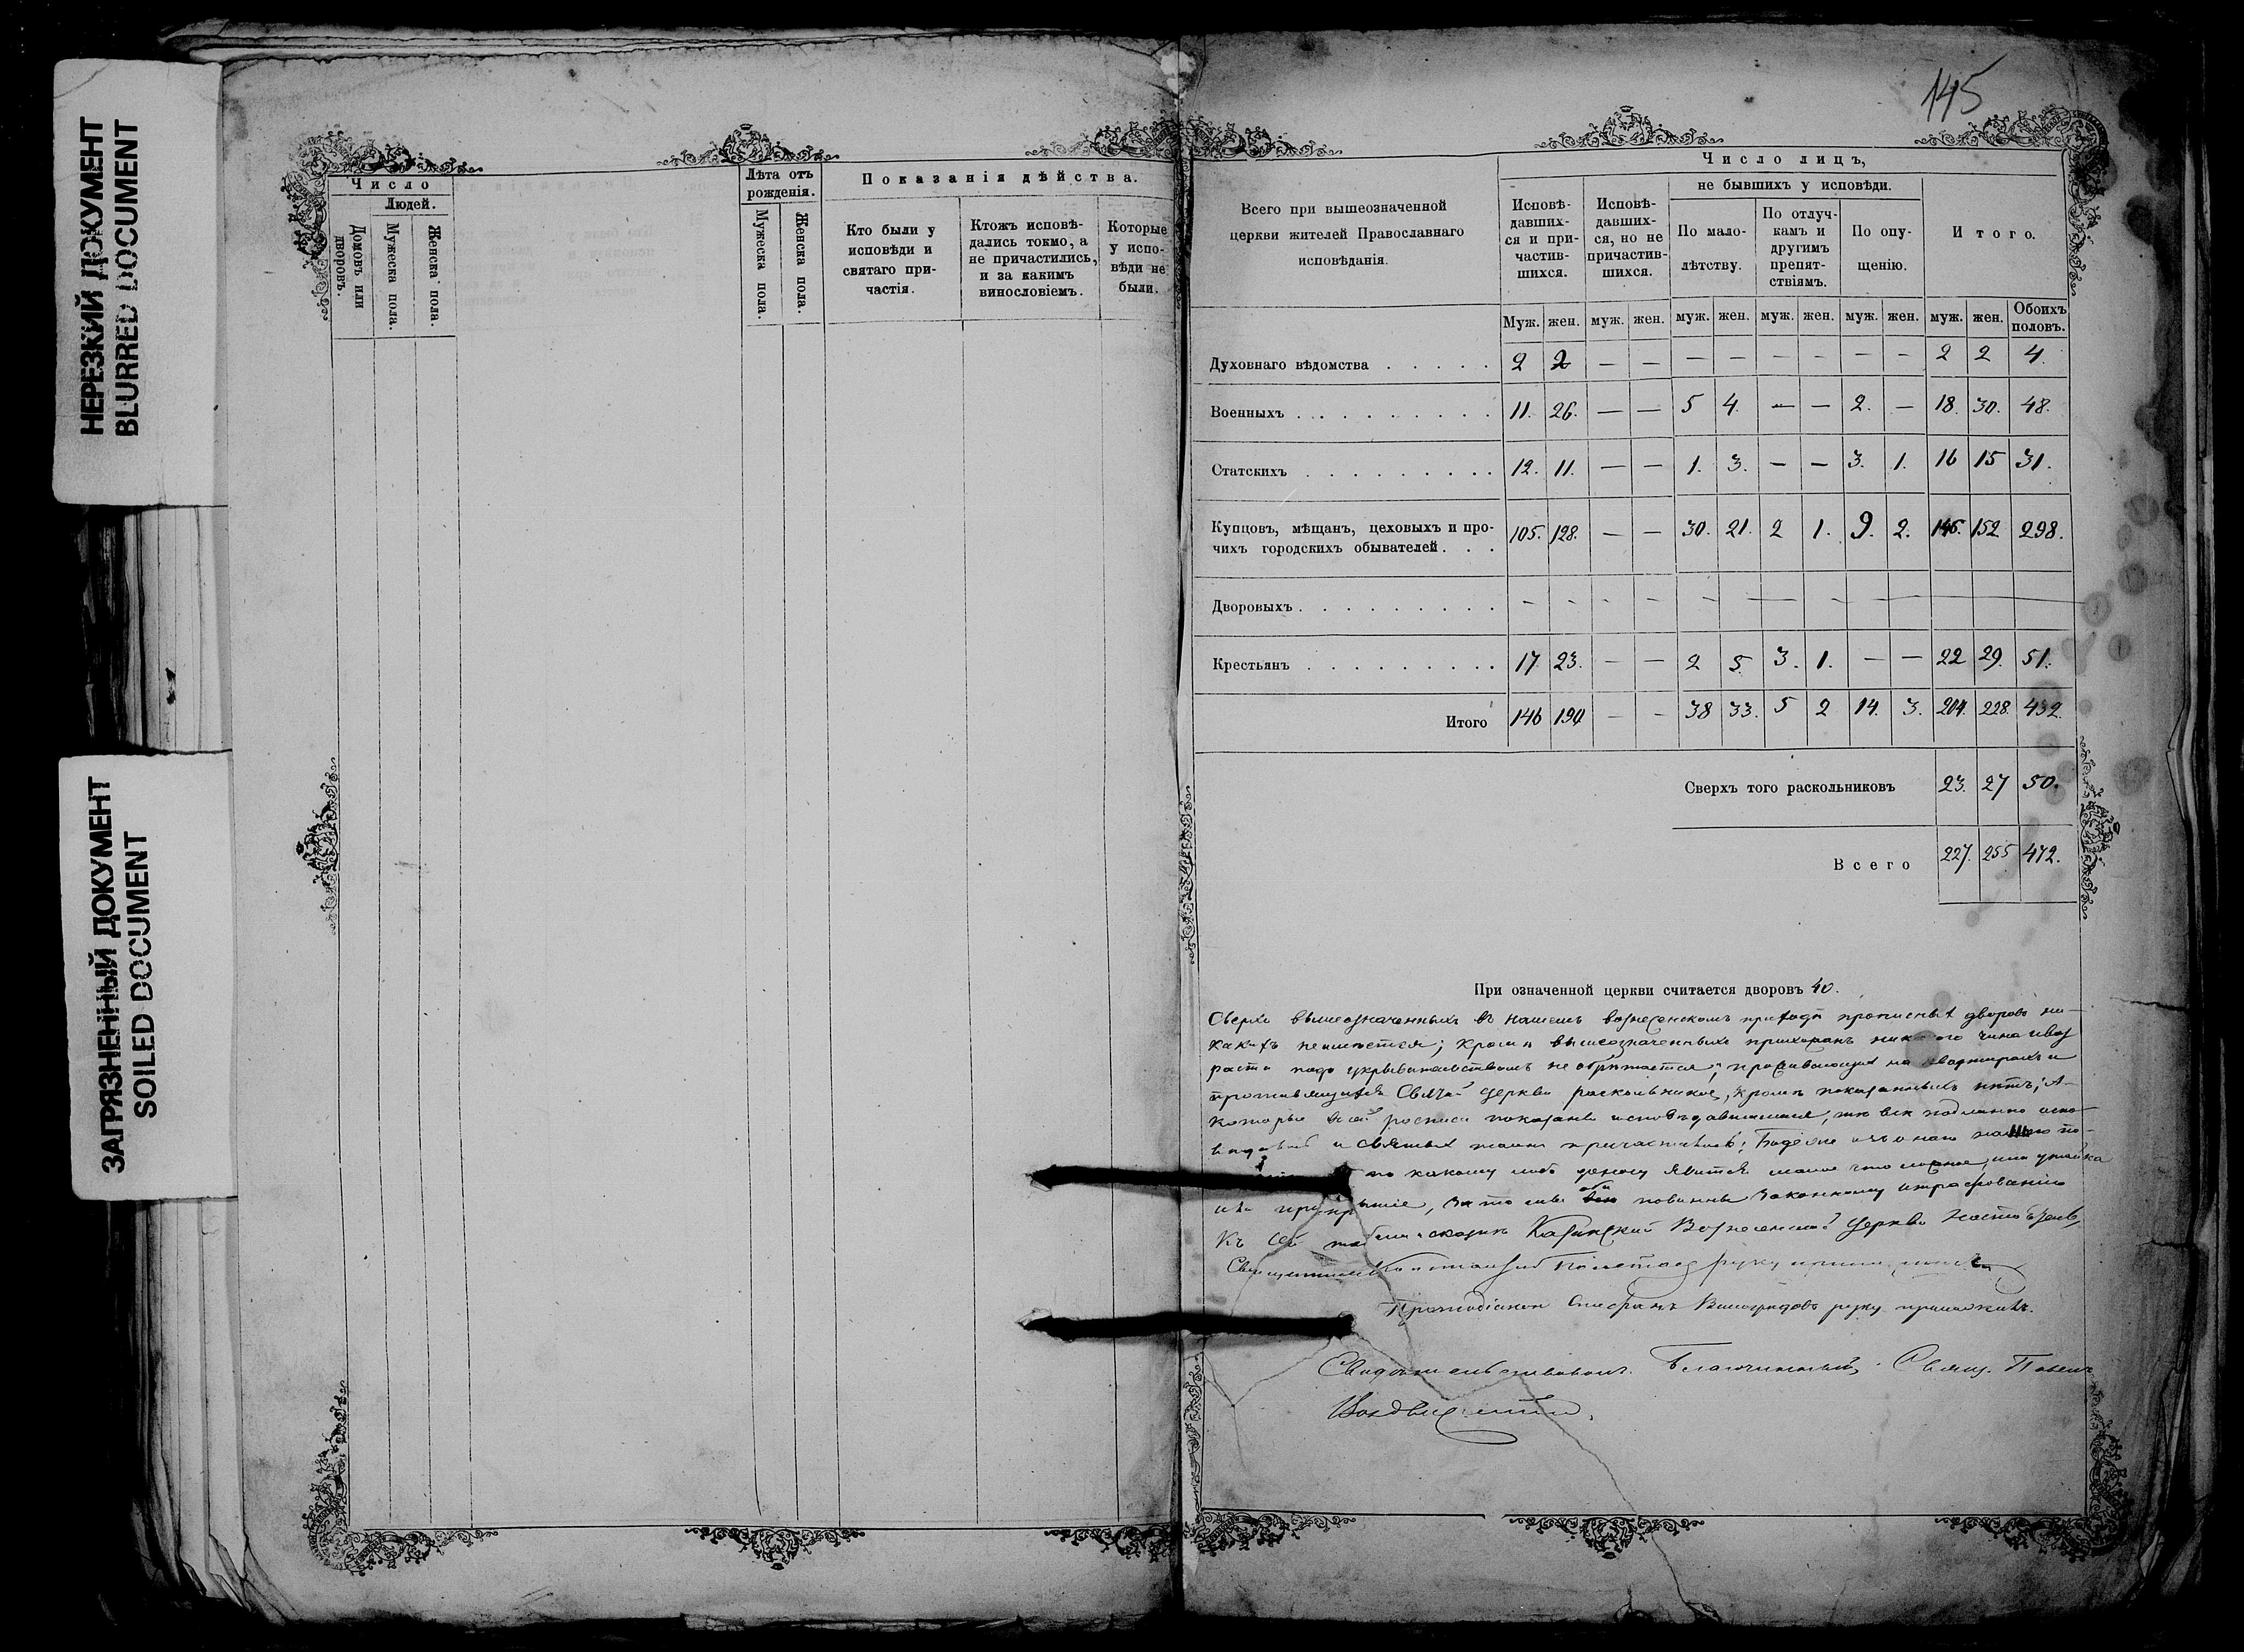 НЕРЕЗКИЙ ДОКУМЕНТ
BLURRED DOCUMENT
ЗАГРЯЗНЕННЫЙ ДОКУМЕНТ
SOILED DOCUMENT
Число
Людей.
Домовъ или дворовъ.
Мужеска пола.
Женска пола.
Лѣта отъ
рожденія.
Мужеска пола.
Женска пола.
Показанія дѣйства.
Кто были у
исповѣди и
святаго при-
частія.
Ктожъ исповѣ-
дались токмо, а
не причастились,
и за какимъ
винословіемъ.
Которые
у испо-
вѣди не
были.
145
Всего при вышеозначенной
церкви жителей Православнаго
исповѣданія.
Число лицъ,
Исповѣ-
давших-
ся и при-
частив-
шихся.
Исповѣ-
давших-
ся, но не
причастив-
шихся.
не бывшихъ у исповѣди.
По мало-
лѣтству.
По отлуч-
камъ и
другимъ
препят-
ствіямъ.
По опу-
щенію.
Итого.
Муж. жен. муж. жен. муж. жен. муж. жен. муж. жен. муж. жен. Обоихъ половъ.
Духовнаго вѣдомства . . . . . 2 2 — — — — — — — — 2 2 4.
Военныхъ . . . . . . . . . 11. 26. — — 5 4. — — 2. — 18. 30. 48.
Статскихъ . . . . . . . . . 12. 11. — — 1. 3. — — 3. 1. 16 15 31.
Купцовъ, мѣщанъ, цеховыхъ и про-
чихъ городскихъ обывателей . . . 105. 128. — — 30. 21. 2 1. 9. 2. 146. 152 298.
Дворовыхъ . . . . . . . . . - - - - - — — — — —
Крестьянъ . . . . . . . . . 17. 23. — — 2 5 3. 1. — — 22 29. 51.
Итого 146 190 — — 38 33. 5 2 14. 3. 204. 228. 432.
Сверхъ того раскольниковъ 23. 27 50.
Всего 227. 255 472.
При означенной церкви считается дворовъ 40.
Сверхъ вышеозначенныхъ въ нашемъ вознесенскомъ приходѣ прописныхъ дворовъ ни-
какихъ неимѣется; кромѣ вышеозначенныхъ прихожанъ никакого чина и воз
раста подъ укрывательствомъ не обрѣтается; проживающихъ на квартирахъ и
противящихся Святой церкви раскольниковъ, кромѣ показанныхъ нѣтъ; А
которые въ сей росписи показаны исповѣдавшимися, тѣ всѣ подлинно испо-
и святыхъ таинъ
по какому либо доносу явится
за то мы повинны законному штрафованію
Къ сей Казанской Вознесенской церкви
руку
Протодіаконъ Виноградовъ руку приложилъ.
Свидѣтельствовалъ Благочинный, Свящ. Павелъ